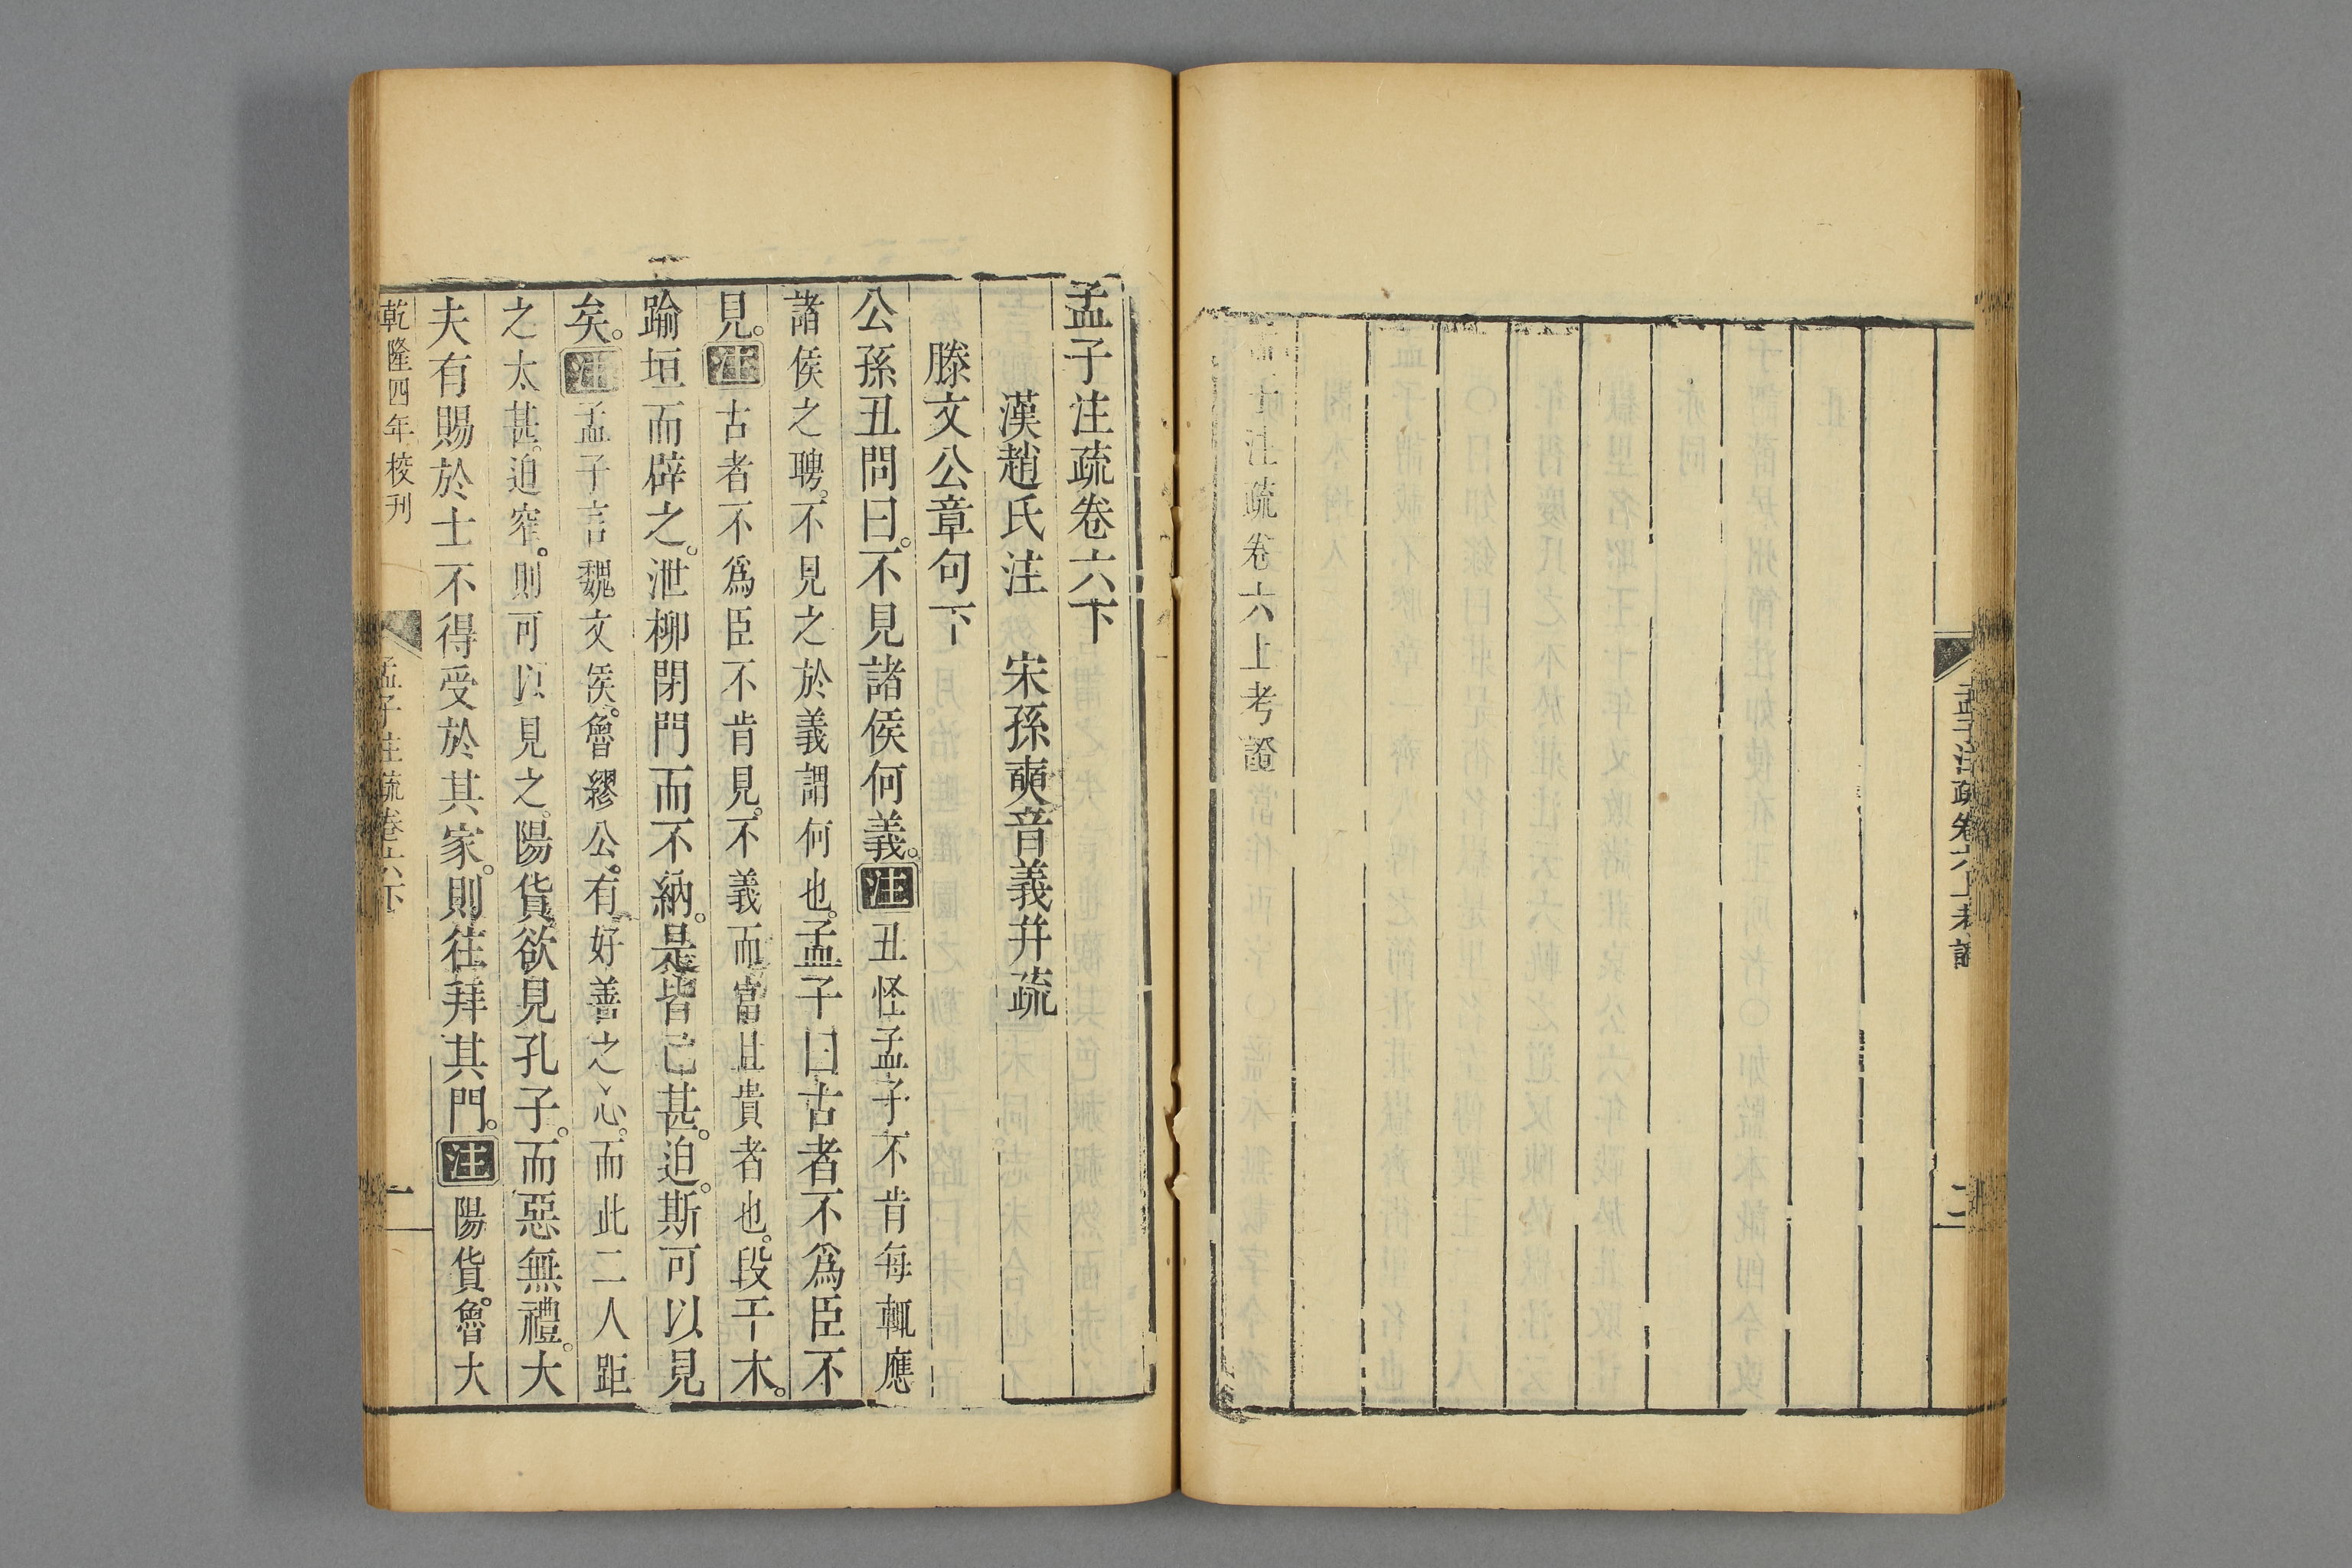 孟子注疏卷六上考證
二
孟子注疏卷六上考證
孟子注疏卷六下
漢趙氏注　宋孫奭音義并疏
滕文公章句下
公孫丑問曰。不見諸侯何義。注丑怪孟子不肯每輒應
諸侯之聘。不見之於義謂何也。孟子曰古者不爲臣不
見。注古者不爲臣不肯見。不義而富且貴者也。段干木。
踰垣而辟之。泄柳閉門而不納。是皆已甚。迫。斯可以見
矣。注孟子言魏文侯。魯繆公。有好善之心。而此二人距
之太甚。迫窄。則可以見之。陽貨欲見孔子。而惡無禮。大
夫有賜於士不得受於其家。則往拜其門。注陽貨。魯大
乾隆四年校刊
孟子注疏卷六下
一